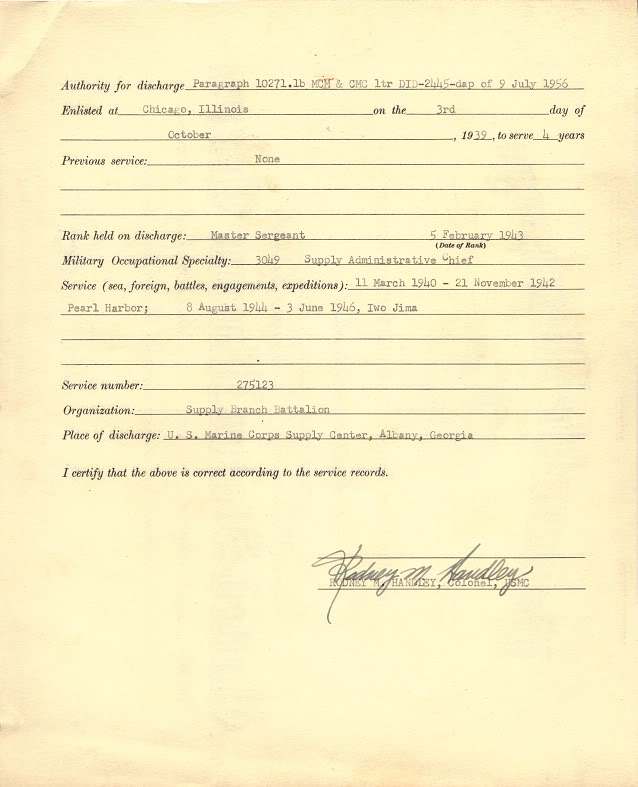 Authority for discharge Paragraph 10271.1b MCM & CMC ltr DID-2445-dap of 9 July 1956
Enlisted at Chicago, Illinois on the 3rd day of
October , 1939, to serve 4 years
Previous service: None
Rank held on discharge: Master Sergeant 5 February 1943
(Date of Rank)
Military Occupational Specialty: 3049 Supply Administrative Chief
Service (sea, foreign, battles, engagements, expeditions): 11 March 1940 - 21 November 1942
Pearl Harbor; 8 August 1944 - 3 June 1946, Iwo Jima
Service number: 275123
Organization: Supply Branch Battalion
Place of discharge: U. S. Marine Corps Supply Center, Albany, Georgia
I certify that the above is correct according to the service records.
Rodney M. Handley
RODNEY M. HANDLEY, Colonel, USMC